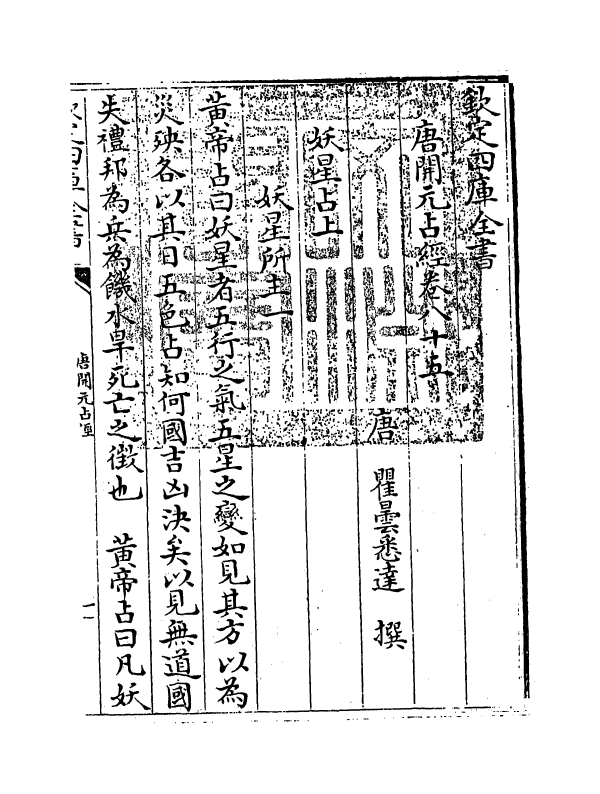 欽定四庫全書
唐開元占經卷八十五
唐 瞿曇悉達 撰
妖星占上
妖星所主一
黃帝占曰妖星者五行之氣五星之變如見其方以為
災殃各以其日五色占知何國吉凶決矣以見無道國
失禮邦為兵為饑水旱死亡之徵也 黃帝占曰凡妖
唐開元占經
一